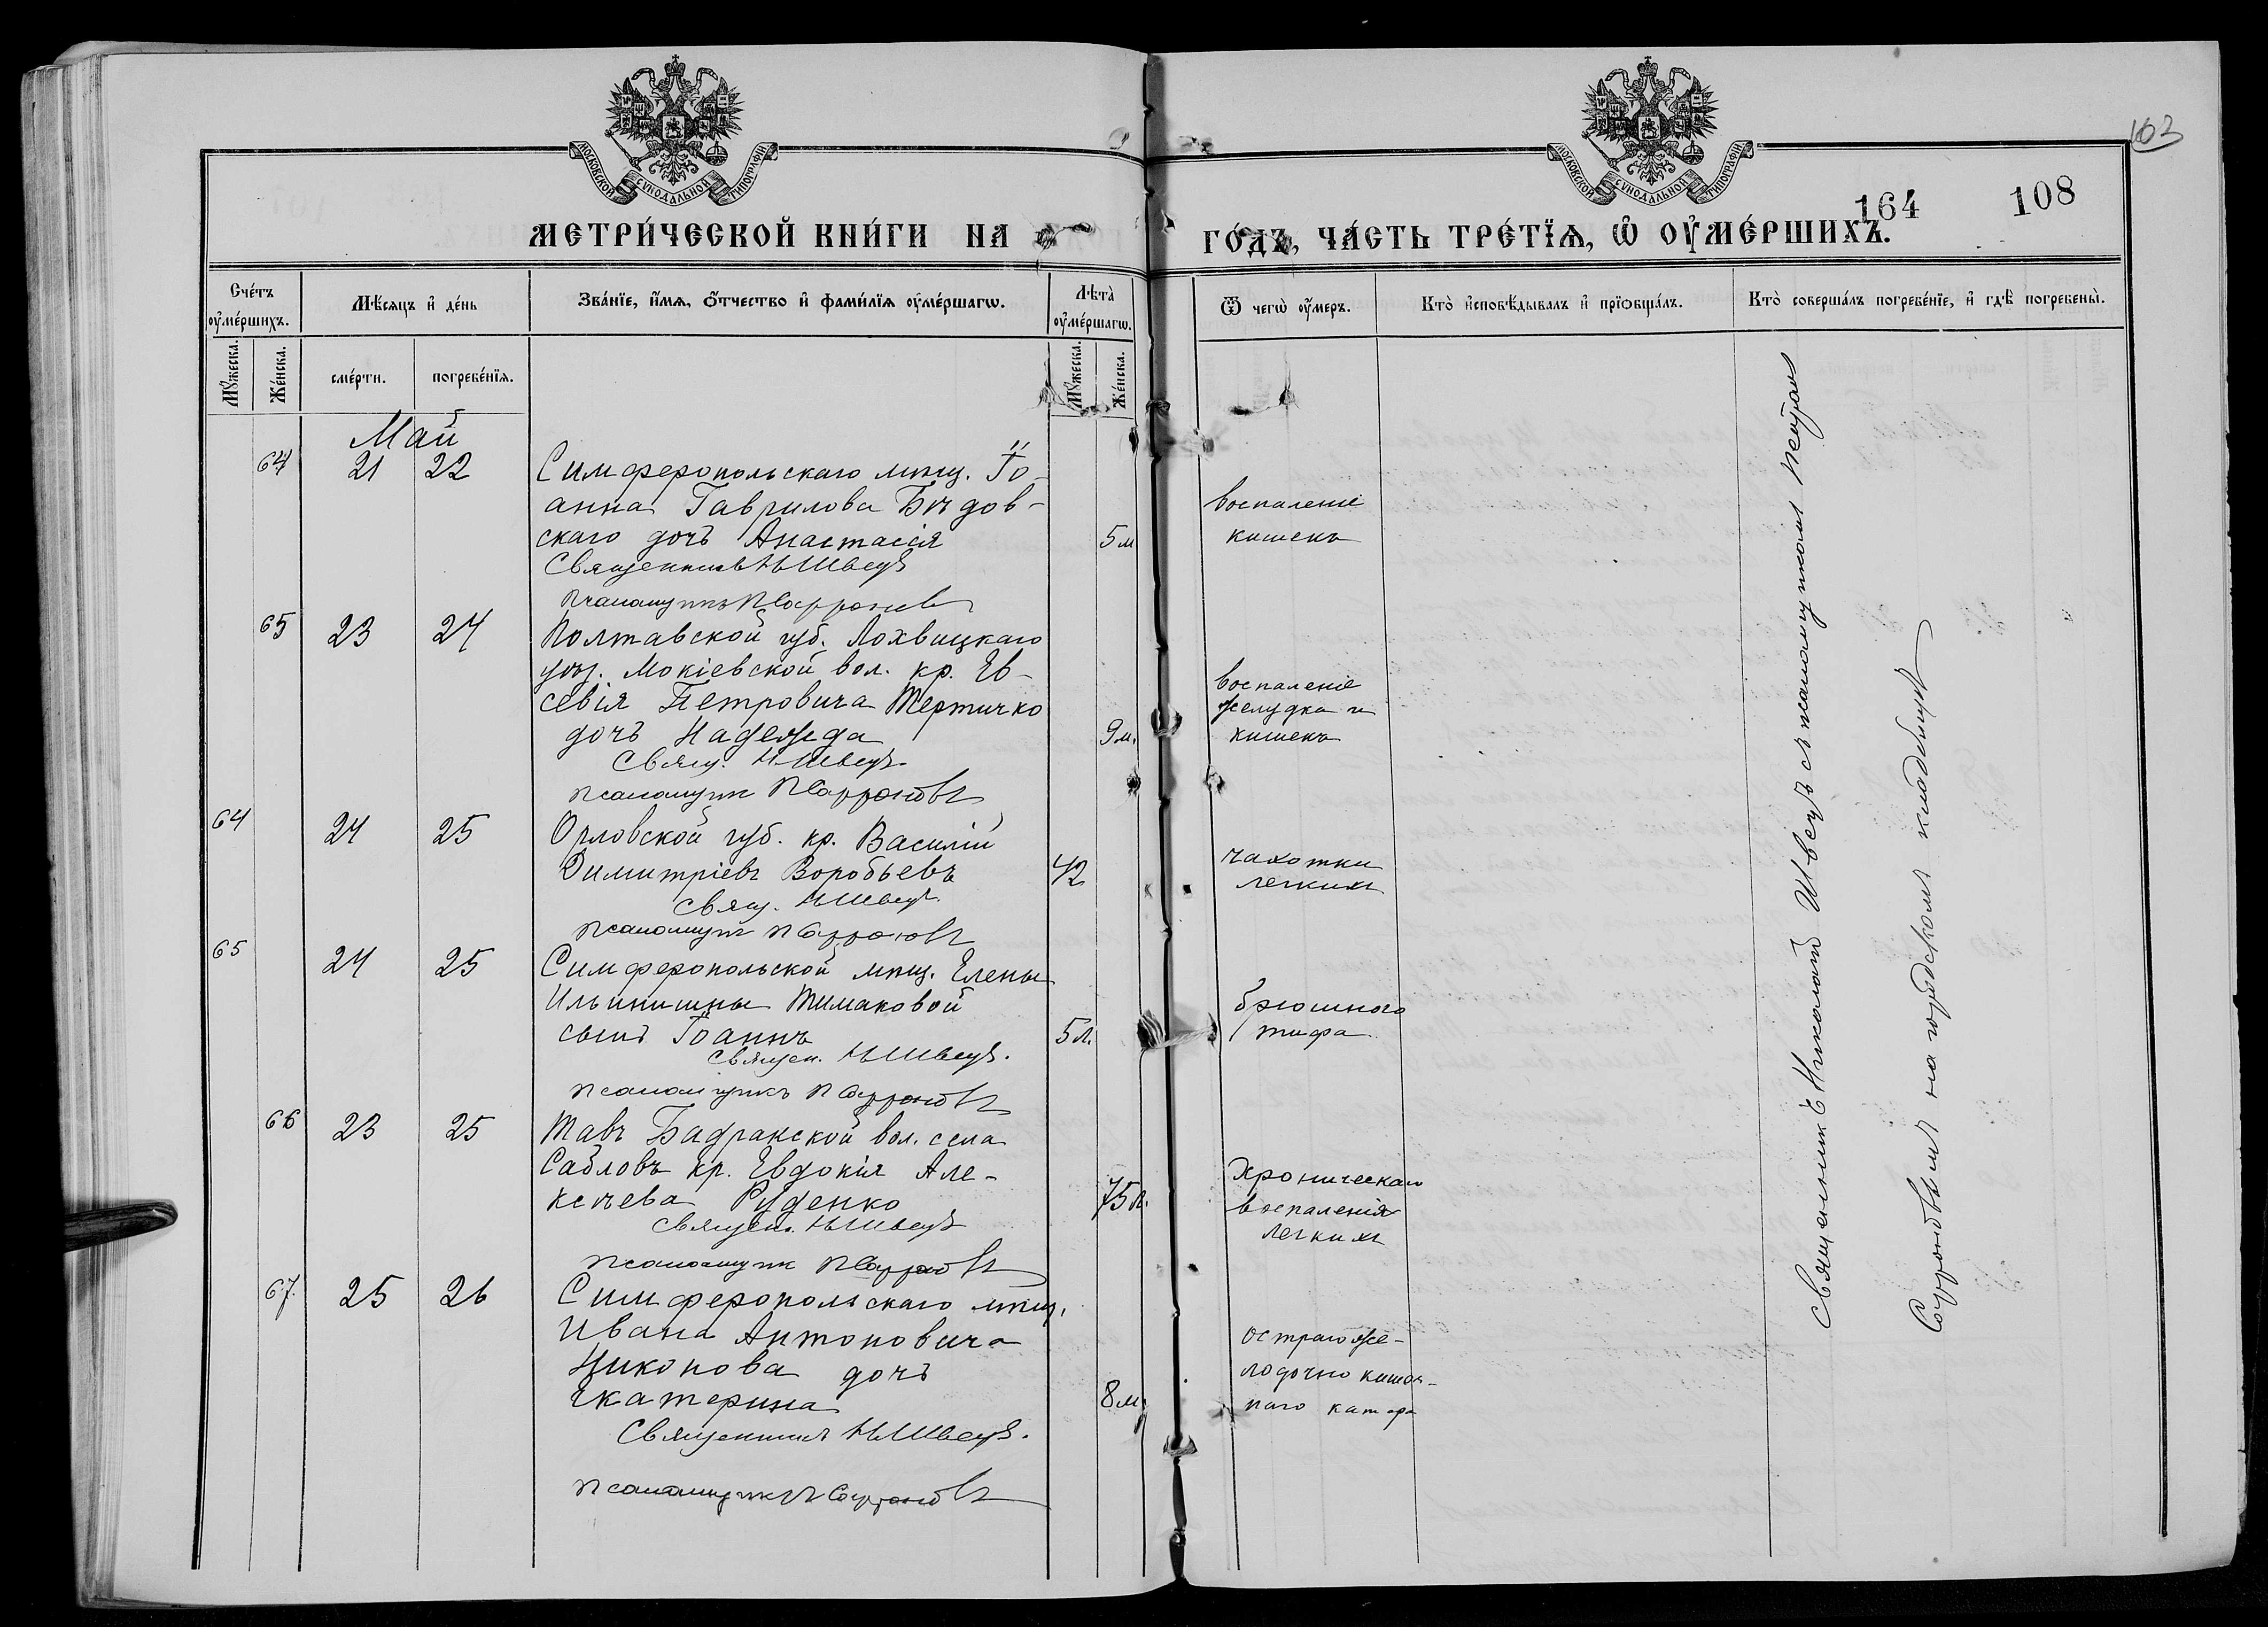 103
164 108
МОСКОВСКОЙ СУНОДАЛЬНОЙ ТИПОГРАФІИ
МОСКОВСКОЙ СУНОДАЛЬНОЙ ТИПОГРАФІИ
МЕТРИ́ЧЕСКОЙ КНИ́ГИ НА
ГО́ДЪ, ЧА́СТЬ ТРЕ́ТЇѦ, Ѽ ОУ҆МЕ́РШИХЪ.
Сче́тъ оу҆ме́ршихъ.
Мѣ́сѧцъ и҆ де́нь
Зва́нїе, и҆́мѧ, ѻ҆́тчество и҆ фами́лїѧ оу҆ме́ршагѡ.
Лѣта̀ оу҆ме́ршагѡ.
Ѿ чегѡ̀ оу҆́меръ.
Кто̀ и҆сповѣ́дывалъ и҆ прїѡбща́лъ.
Кто̀ соверша́лъ погребе́нїе, и҆ гдѣ̀ погребены̀.
Мꙋ́жеска.
Же́нска.
сме́рти.
погребе́нїѧ.
Мꙋ́жеска.
Же́нска.
Май
64 21 22 Симферопольскаго мѣщ. Іо-
анна Гаврилова Бѣдов-
скаго дочь Анастасія 5 м
воспаленіе
кишекъ
Священникъ Н Швецъ
Псаломщикъ П Софроновъ
65 23 24 Полтавской губ. Лохвицкаго
уѣз. Мокіевской вол. кр. Ев-
севія Петровича Тертичко
дочь Надежда 9 м.
воспаленіе
желудка и
кишекъ
Свящ. Н Швецъ.
псаломщик П Софроновъ
64 24 25 Орловской губ. кр. Василій
Димитріевъ Воробьевъ 42
чахотки
легкихъ
Свящ. Н Швецъ.
псаломщик П Софроновъ
65 24 25 Симферопольской мѣщ. Елены
Ильинишны Тимаковой
сынъ Іоаннъ 5 л.
брюшного
тифа
Священ. Н Швецъ.
псаломщикъ П Софроновъ
66 23 25 Тавъ Бадракской вол. села
Сабловъ кр. Евдокія Але-
ксѣева Руденко 75 л.
Хроническаго
воспаленія
легкихъ
Священ. Н Швецъ
псаломщик П Софроновъ
67. 25 26 Симферопольскаго мѣщ.
Ивана Антоновича
Никонова дочь
Екатерина 8 м.
остраго же-
лодочно кишеч-
наго катара
Священникъ Н Швецъ.
псаломщикъ П Софроновъ
Священникъ Николай Швецъ съ псаломщикомъ Петромъ
Софроновымъ на городскомъ кладбищѣ